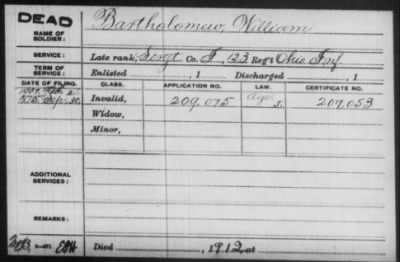 DEAD
NAME OF SOLDIER: Bartholomew, William
SERVICE: Late rank, Sergt Co. F, 123 Reg't Ohio Inf
TERM OF SERVICE: Enlisted , 1 Discharged , 1
DATE OF FILING. CLASS. APPLICATION NO. LAW. CERTIFICATE NO.
Invalid, 209,075 Age 207,053
Widow,
Minor,
ADDITIONAL SERVICES:
REMARKS:
Died , 1912, at